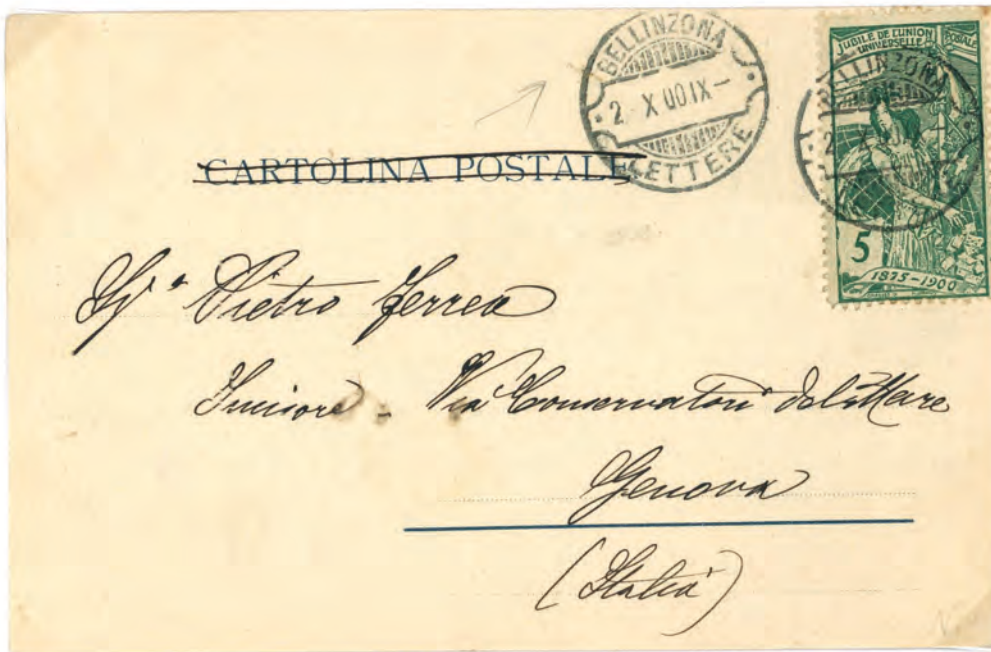 BELLINZONA
2. X 00 IX –
LETTERE
JUBILÉ DE L'UNION POSTALE
UNIVERSELLE
BELLINZONA
2. X 00
5
1875–1900
CARTOLINA POSTALE
Sigr Pietro Ferrea
Incisore – Via Conservatori del Mare
Genova
(Italia)